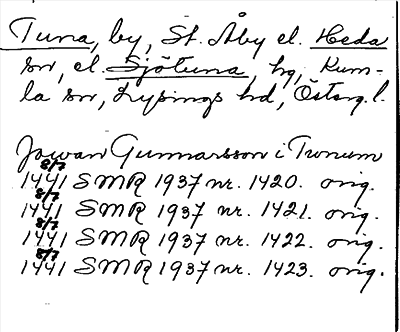 Tuna, by, St. Åby el. Heda
sn, el. Sjötuna, hg, Kum-
la sn, Lysings hd, Östng.l.
Jowan Gunnarsson i Tunum
8/7
1441 SMR 1937 nr. 1420. orig.
8/7
1441 SMR 1937 nr. 1421. orig.
8/7
1441 SMR 1937 nr. 1422. orig.
8/7
1441 SMR 1937 nr. 1423. orig.